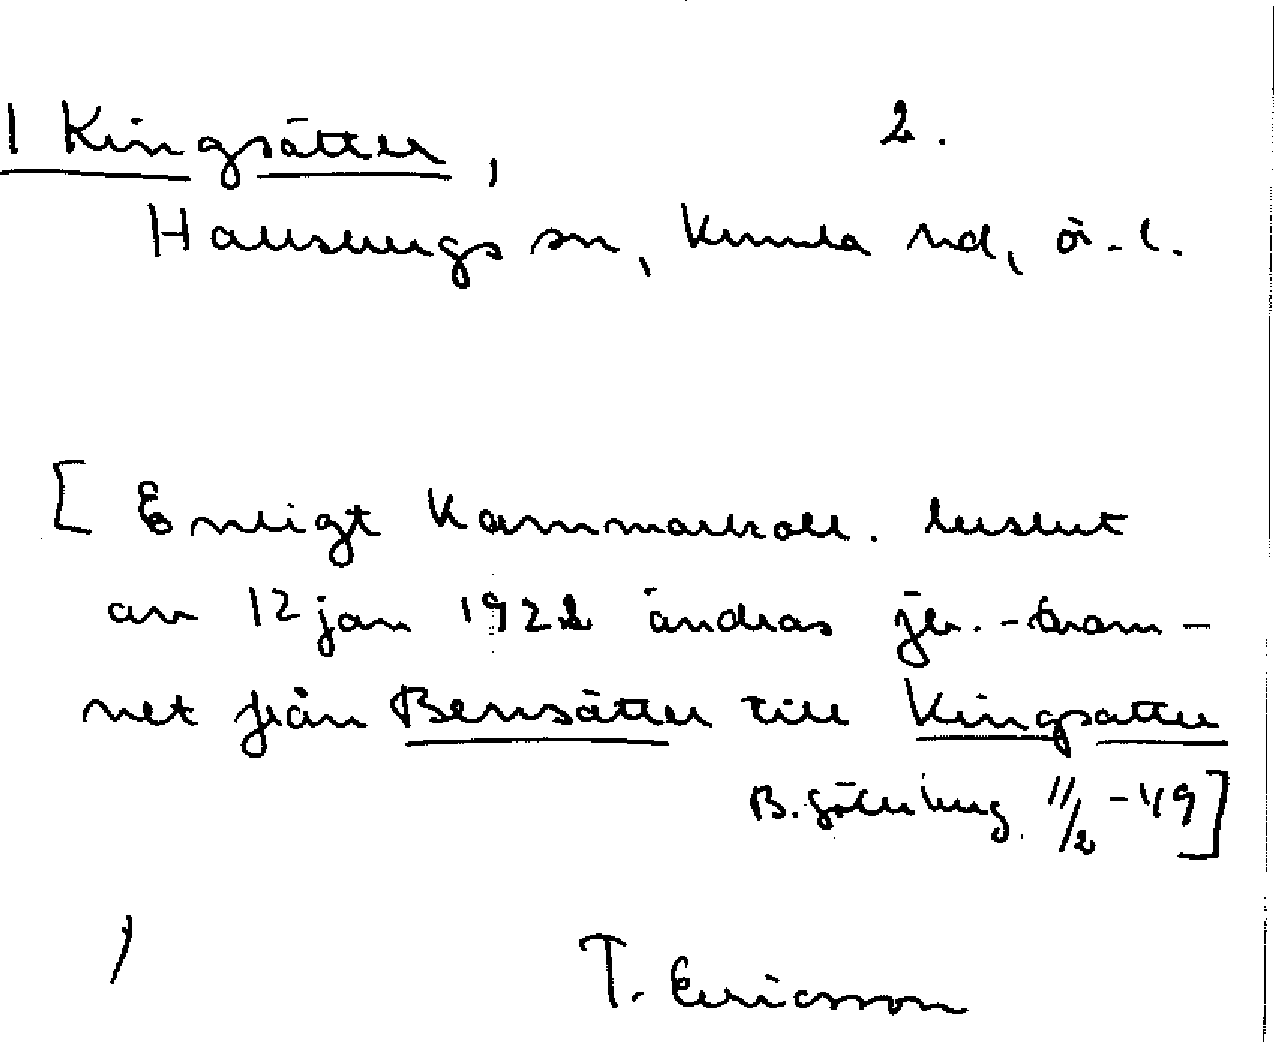 1 Kingsätter, 2.
Hallsbergs sn, Kumla hd, ö.l.
[ Enligt Kammarkoll. beslut
av 12 jan 1922 ändras jb.-
net från Bensätter till Kingsätter
B. Göteborg 11/2 -49]
T. Ericsson